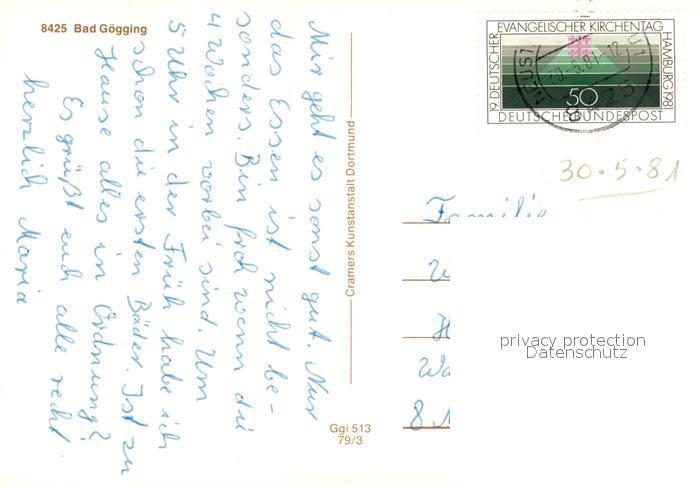 8425 Bad Gögging
Mir geht es sonst gut. Nur
das Essen ist nicht be-
sonders. Bin froh wenn die
4 Wochen vorbei sind. Um
5 Uhr in der Früh habe ich
schon die ersten Bäder. Ist zu
Hause alles in Ordnung?
Es grüßt euch alle recht
herzlich Maria
Cramers Kunstanstalt Dortmund
Ggi 513
79/3
19. DEUTSCHER EVANGELISCHER KIRCHENTAG HAMBURG 1981
50
DEUTSCHE BUNDESPOST
30.5.81
Familie
privacy protection
Datenschutz